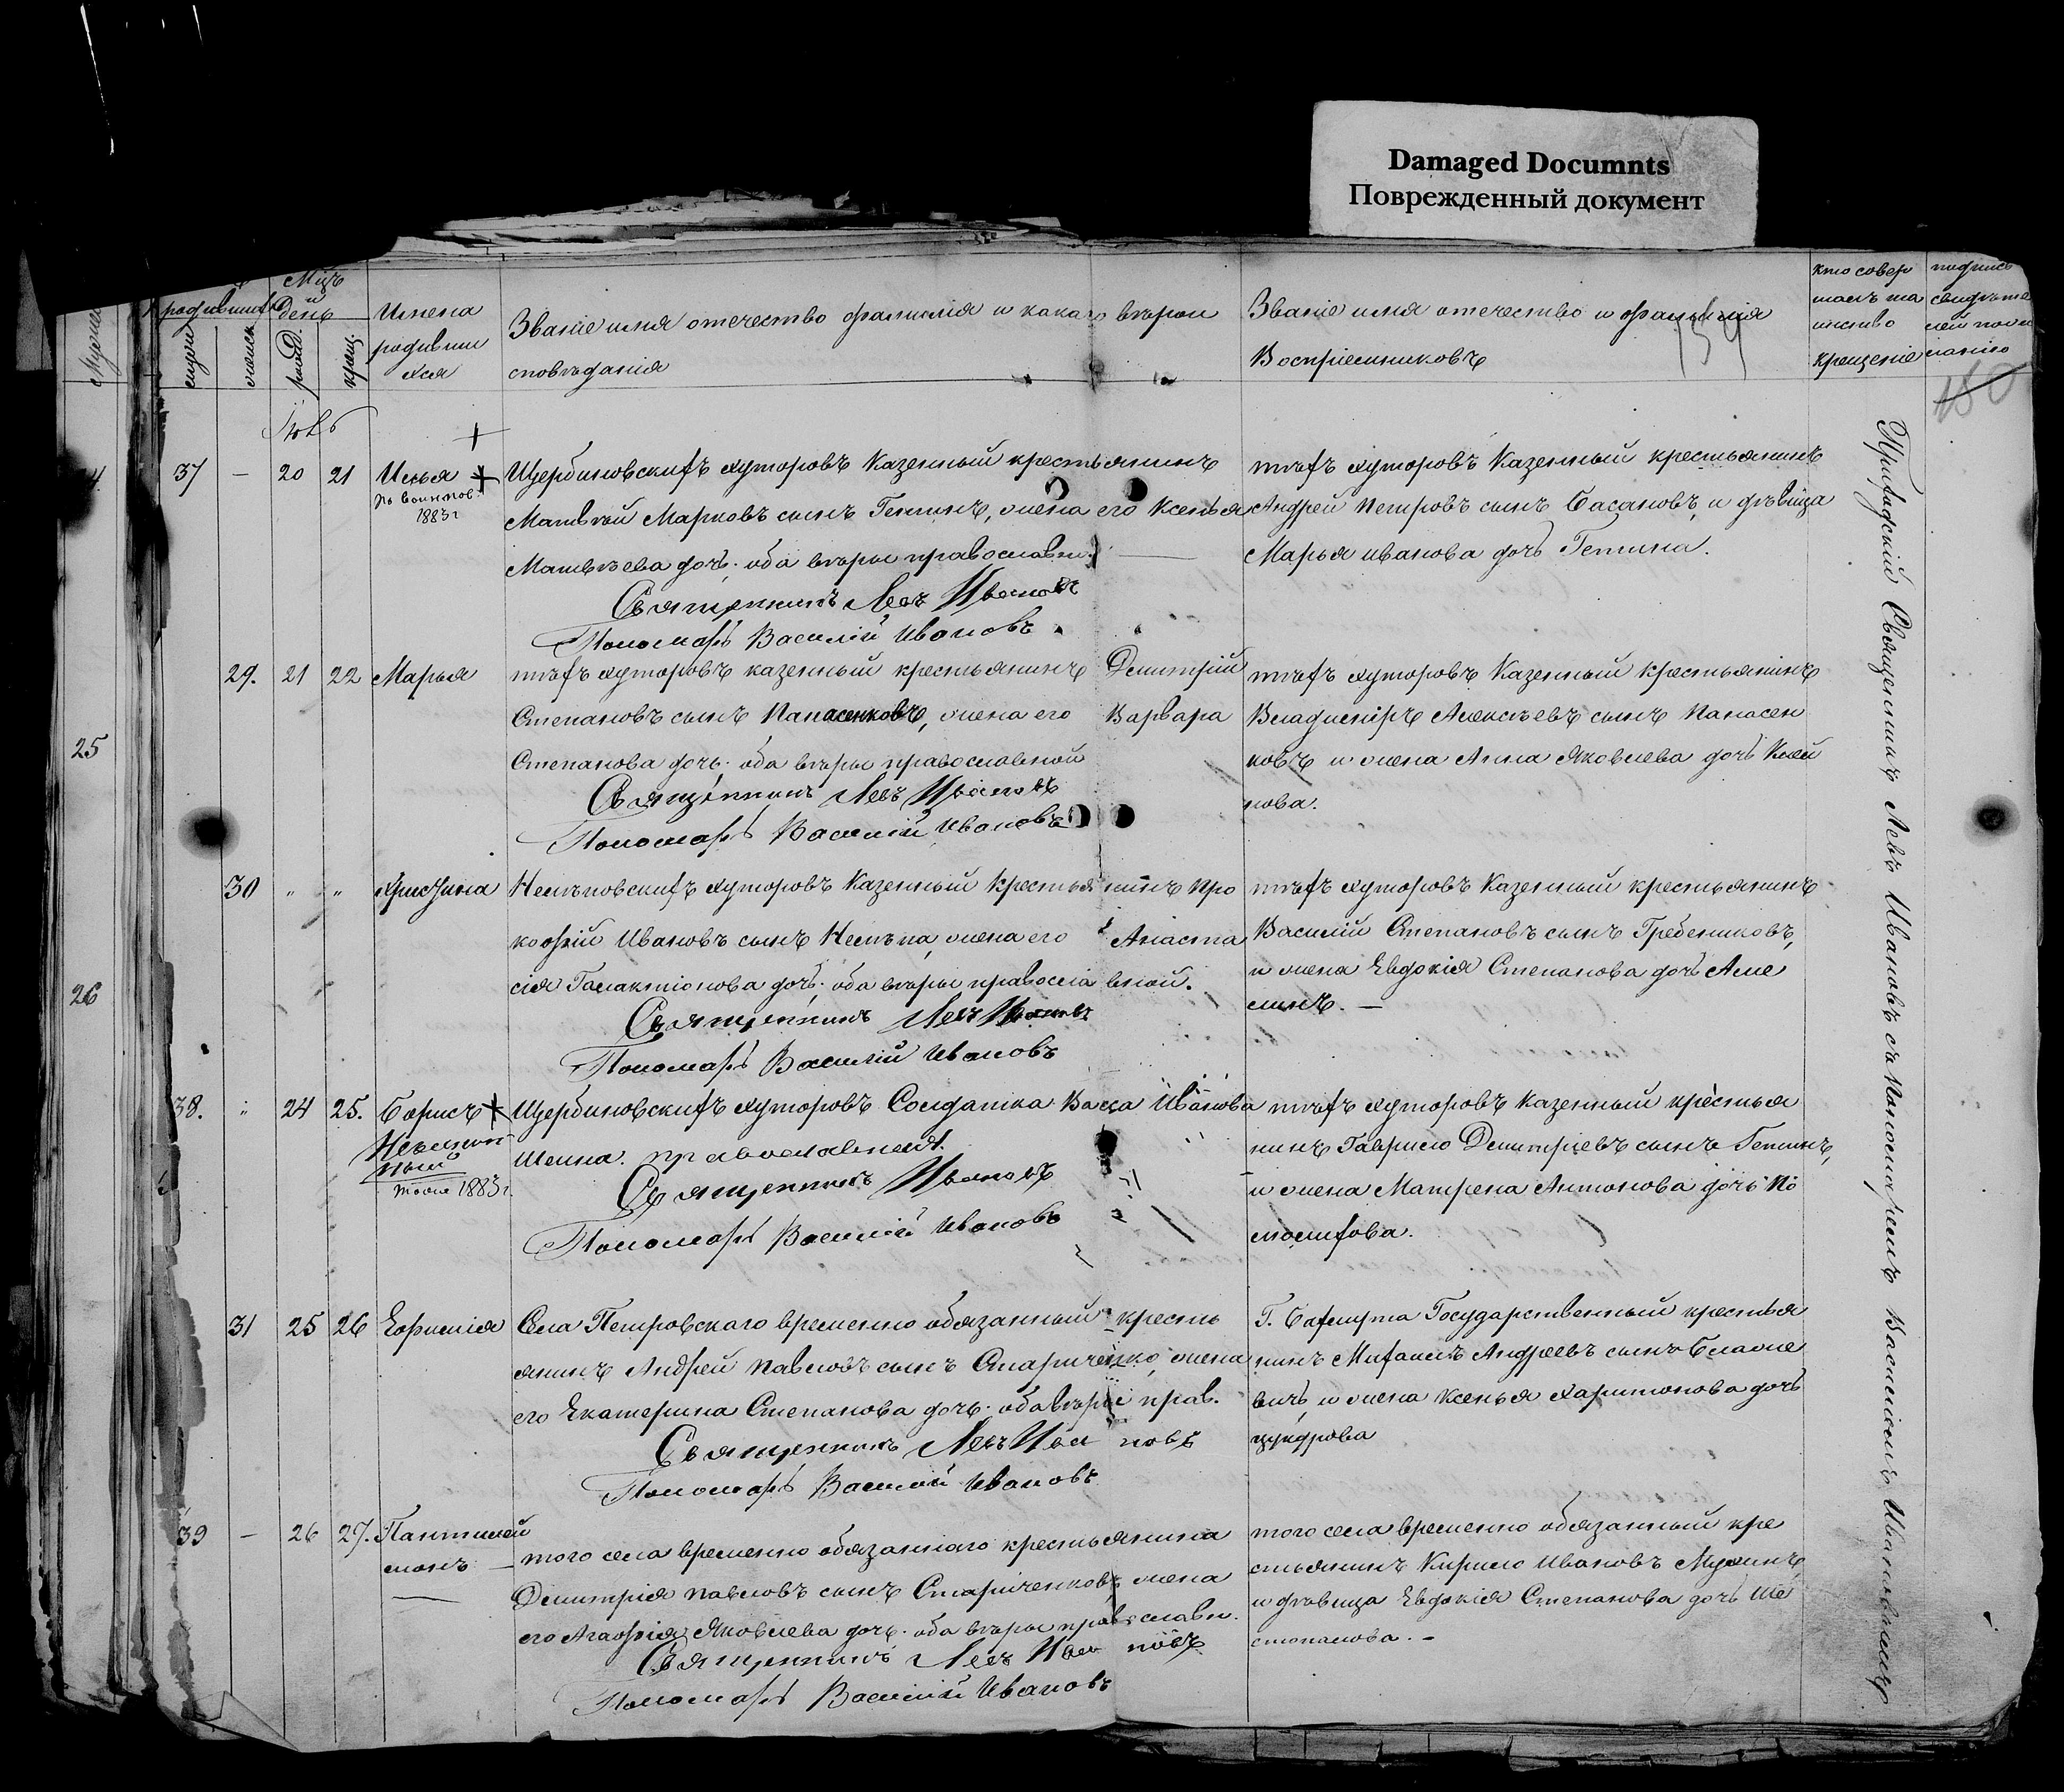 Damaged Documnts
Поврежденный документ
Мцъ
и
День
родившихся
мужеск
женск
рожд.
крещ.
Имена
родивши
хся
Званіе имя отечество фамилія и какаго въроис
повъданія
Званіе имя отечество и фамилія
Воспріемниковъ
кто совер
шалъ та
инство
крещеніе
подпись
свидъте
лей
154
150
37 — 20 21 Илья
въ воинпов.
1883 г
Щербиновскихъ хуторовъ Казенный крестьянинъ
Матвъй Марковъ сынъ Гетинъ, жена его Ксенья
Матвъева дочь. оба въры православн.
Священникъ Левъ Ивановъ
Пономарь Василій Ивановъ
тъхъ хуторовъ Казенный крестьянинъ
Андрей Петровъ сынъ Басановъ, и дъвица
Марья иванова дочь Гетина.
29. 21 22 Марья
тъхъ хуторовъ казенный крестьянинъ Димитрій
Степановъ сынъ Панасенковъ, жена его Варвара
Степанова дочь. оба въры православной
Священникъ Левъ Ивановъ
Пономарь Василій Ивановъ
тъхъ хуторовъ Казенный крестьянинъ
Владиміръ Алексъевъ сынъ Панасен
ковъ и жена Анна Яковлева дочь Клей
нова.
25
30 " " Христина
Немъповскихъ хуторовъ Казенный крестьянинъ Про
кофій Ивановъ сынъ Немъпа, жена его Анаста
сія Галактіонова дочь. оба въры православной.
Священникъ Левъ Ивановъ
Пономарь Василій Ивановъ
тъхъ хуторовъ Казенный крестьянинъ
Василій Степановъ сынъ Гребениковъ,
и жена Евдокія Степанова дочь Аме
линъ. —
26
38. " 24 25. Борисъ
тоже 1883 г.
Щербиновскихъ хуторовъ Солдатка Васса Иванова
Шеина. православная.
Священникъ Ивановъ
Пономарь Василій Ивановъ
тъхъ хуторовъ Казенный крестья
нинъ Гаврило Димитріевъ сынъ Гетинъ,
и жена Матрена Антонова дочь По
31 25 26 Ефимія
Села Петровскаго временно обязанный кресть
янинъ Андрей Павловъ сынъ Стариченко, жена
его Екатерина Степанова дочь. оба въры прав.
Священникъ Левъ Ивановъ
Пономарь Василій Ивановъ
Г. Бахмута Государственный крестья
нинъ Михаилъ Андреевъ сынъ
вичь, и жена Ксенья Харитонова дочь
цукурова
39 — 26 27. Пантилей
монъ —
того села временно обязаннаго крестьянина
Димитрія Павловъ сынъ Стариченковъ, жена
его Агафія Яковлева дочь. оба въры православн.
Священникъ Левъ Ивановъ
Пономарь Василій Ивановъ
того села временно обязанный кре
стьянинъ Кирило Ивановъ Мухинъ,
и дъвица Евдокія Степанова дочь Ше
степалова. —
Приходскій Священникъ Левъ Ивановъ съ Пономаремъ Василіемъ Ивановымъ